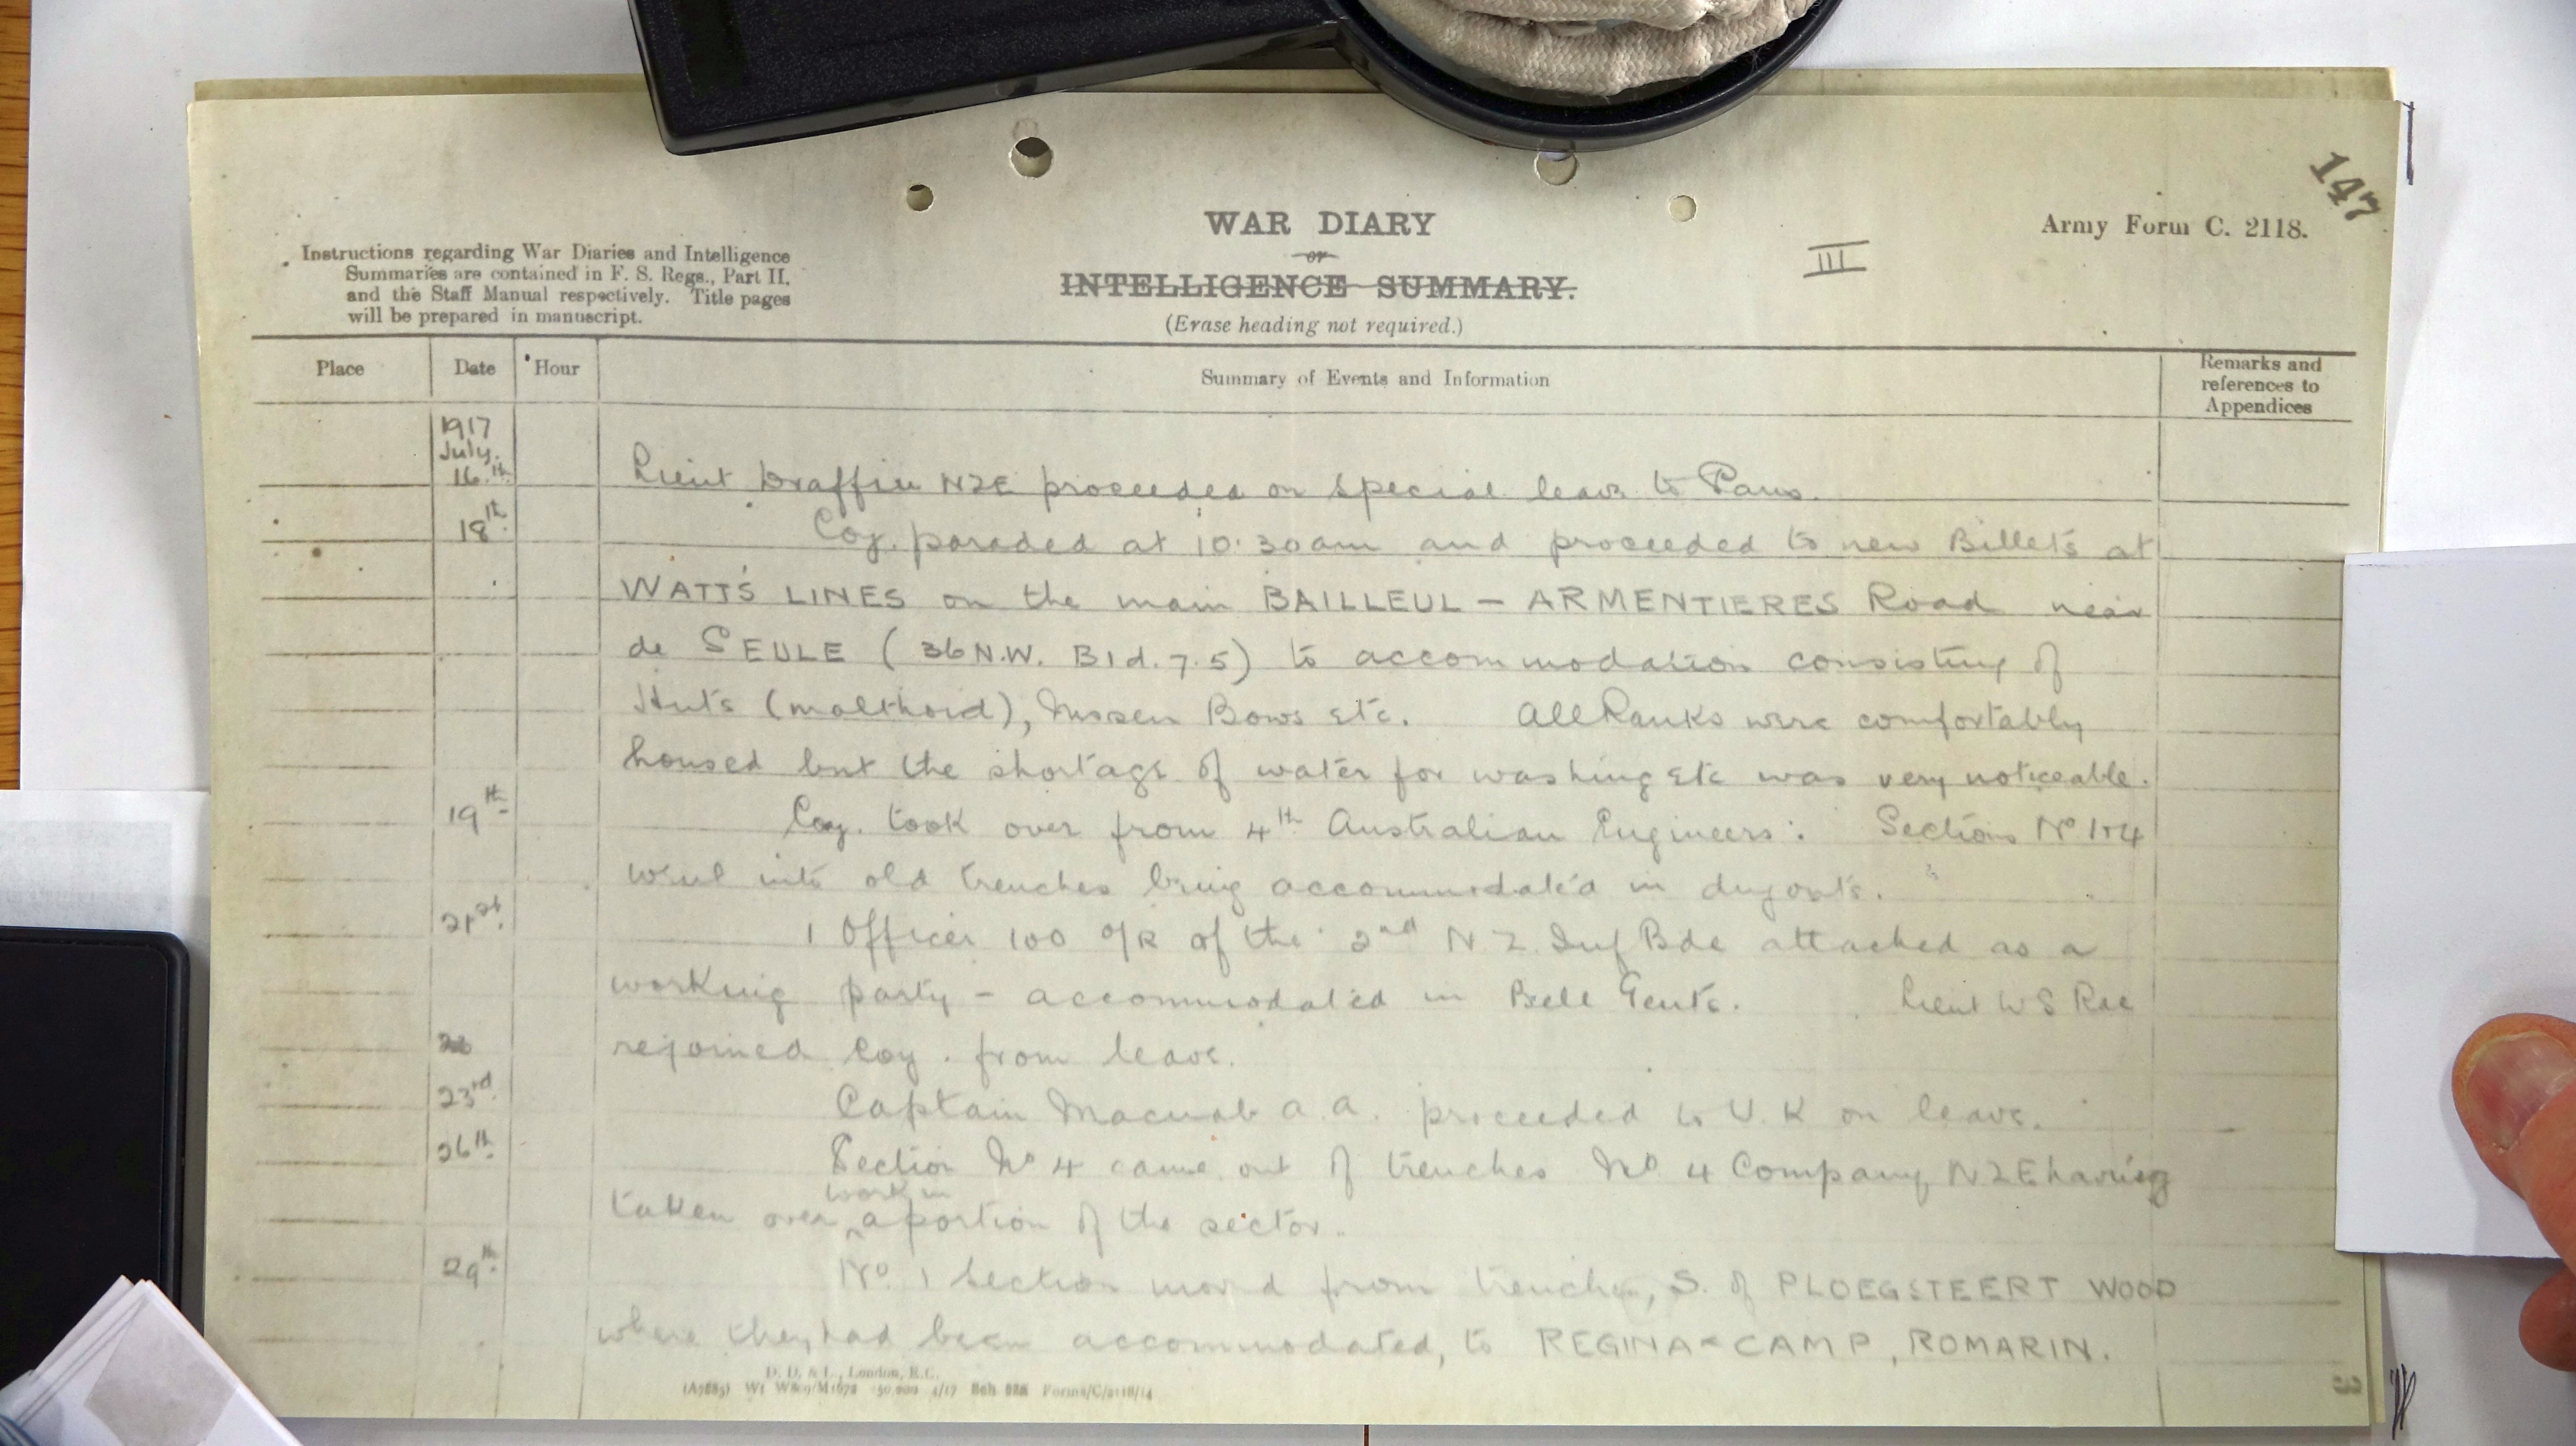 147
Army Form C. 2118.
WAR DIARY
or
INTELLIGENCE SUMMARY.
(Erase heading not required.)
III
Instructions regarding War Diaries and Intelligence
Summaries are contained in F. S. Regs., Part II,
and the Staff Manual respectively. Title pages
will be prepared in manuscript.
Place Date Hour Summary of Events and Information Remarks and references to Appendices
1917
July.
16.th Lieut Draffin NZE proceeded on special leave to Paris.
18th. Coy. paraded at 10.30am and proceeded to new Billets at
WATTS LINES on the main BAILLEUL - ARMENTIERES Road near
de SEULE (36 N.W. B1d.7.5) to accommodation consisting of
Huts (malthoid), Nissen Bows etc. All Ranks were comfortably
housed but the shortage of water for washing etc was very noticeable.
19th. Coy. took over from 4th Australian Engineers: Sections No 1+4
went into old trenches being accommodated in dugouts.
21st. 1 Officer 100 O/R of the 2nd N Z Inf Bde attached as a
working party - accommodated in Bell Tents. Lieut W S Rae
rejoined Coy. from leave.
23rd. Captain Macnab A. A. proceeded to U.K on leave.
26th. Section No 4 came out of trenches No 4 Company NZE having
taken over work in a portion of the sector.
29th. No. 1 Section moved from trenches, S. of PLOEGSTEERT WOOD
where they had been accommodated, to REGINA CAMP, ROMARIN.
D. D. & L., London, E.C.
(A7883) Wt W809/M1672 350,000 4/17 Sch 82A Forms/C/2118/14